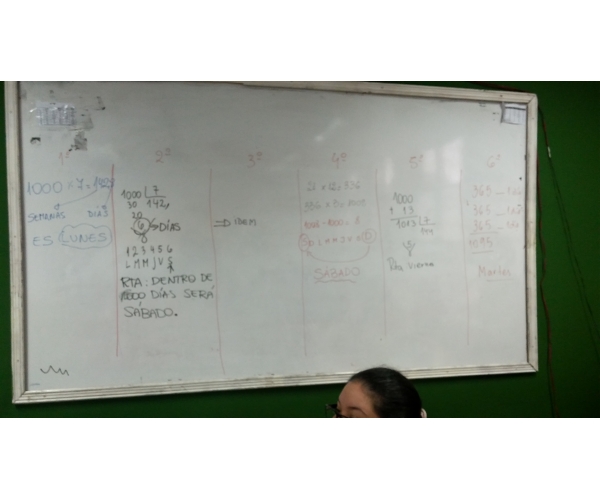 1º
1000 ÷ 7 = 142,
SEMANAS DÍAS
ES LUNES
2º
1000 7
30 142,
20
6 DÍAS
0
1 2 3 4 5 6
L M M J V S
RTA: DENTRO DE
1000 DÍAS SERÁ
SÁBADO.
3º
⇒ idem
4º
SÁBADO
5º
1000
+ 13
1013 7
144
Rta Viernes
6º
365
365
365
1095
Martes